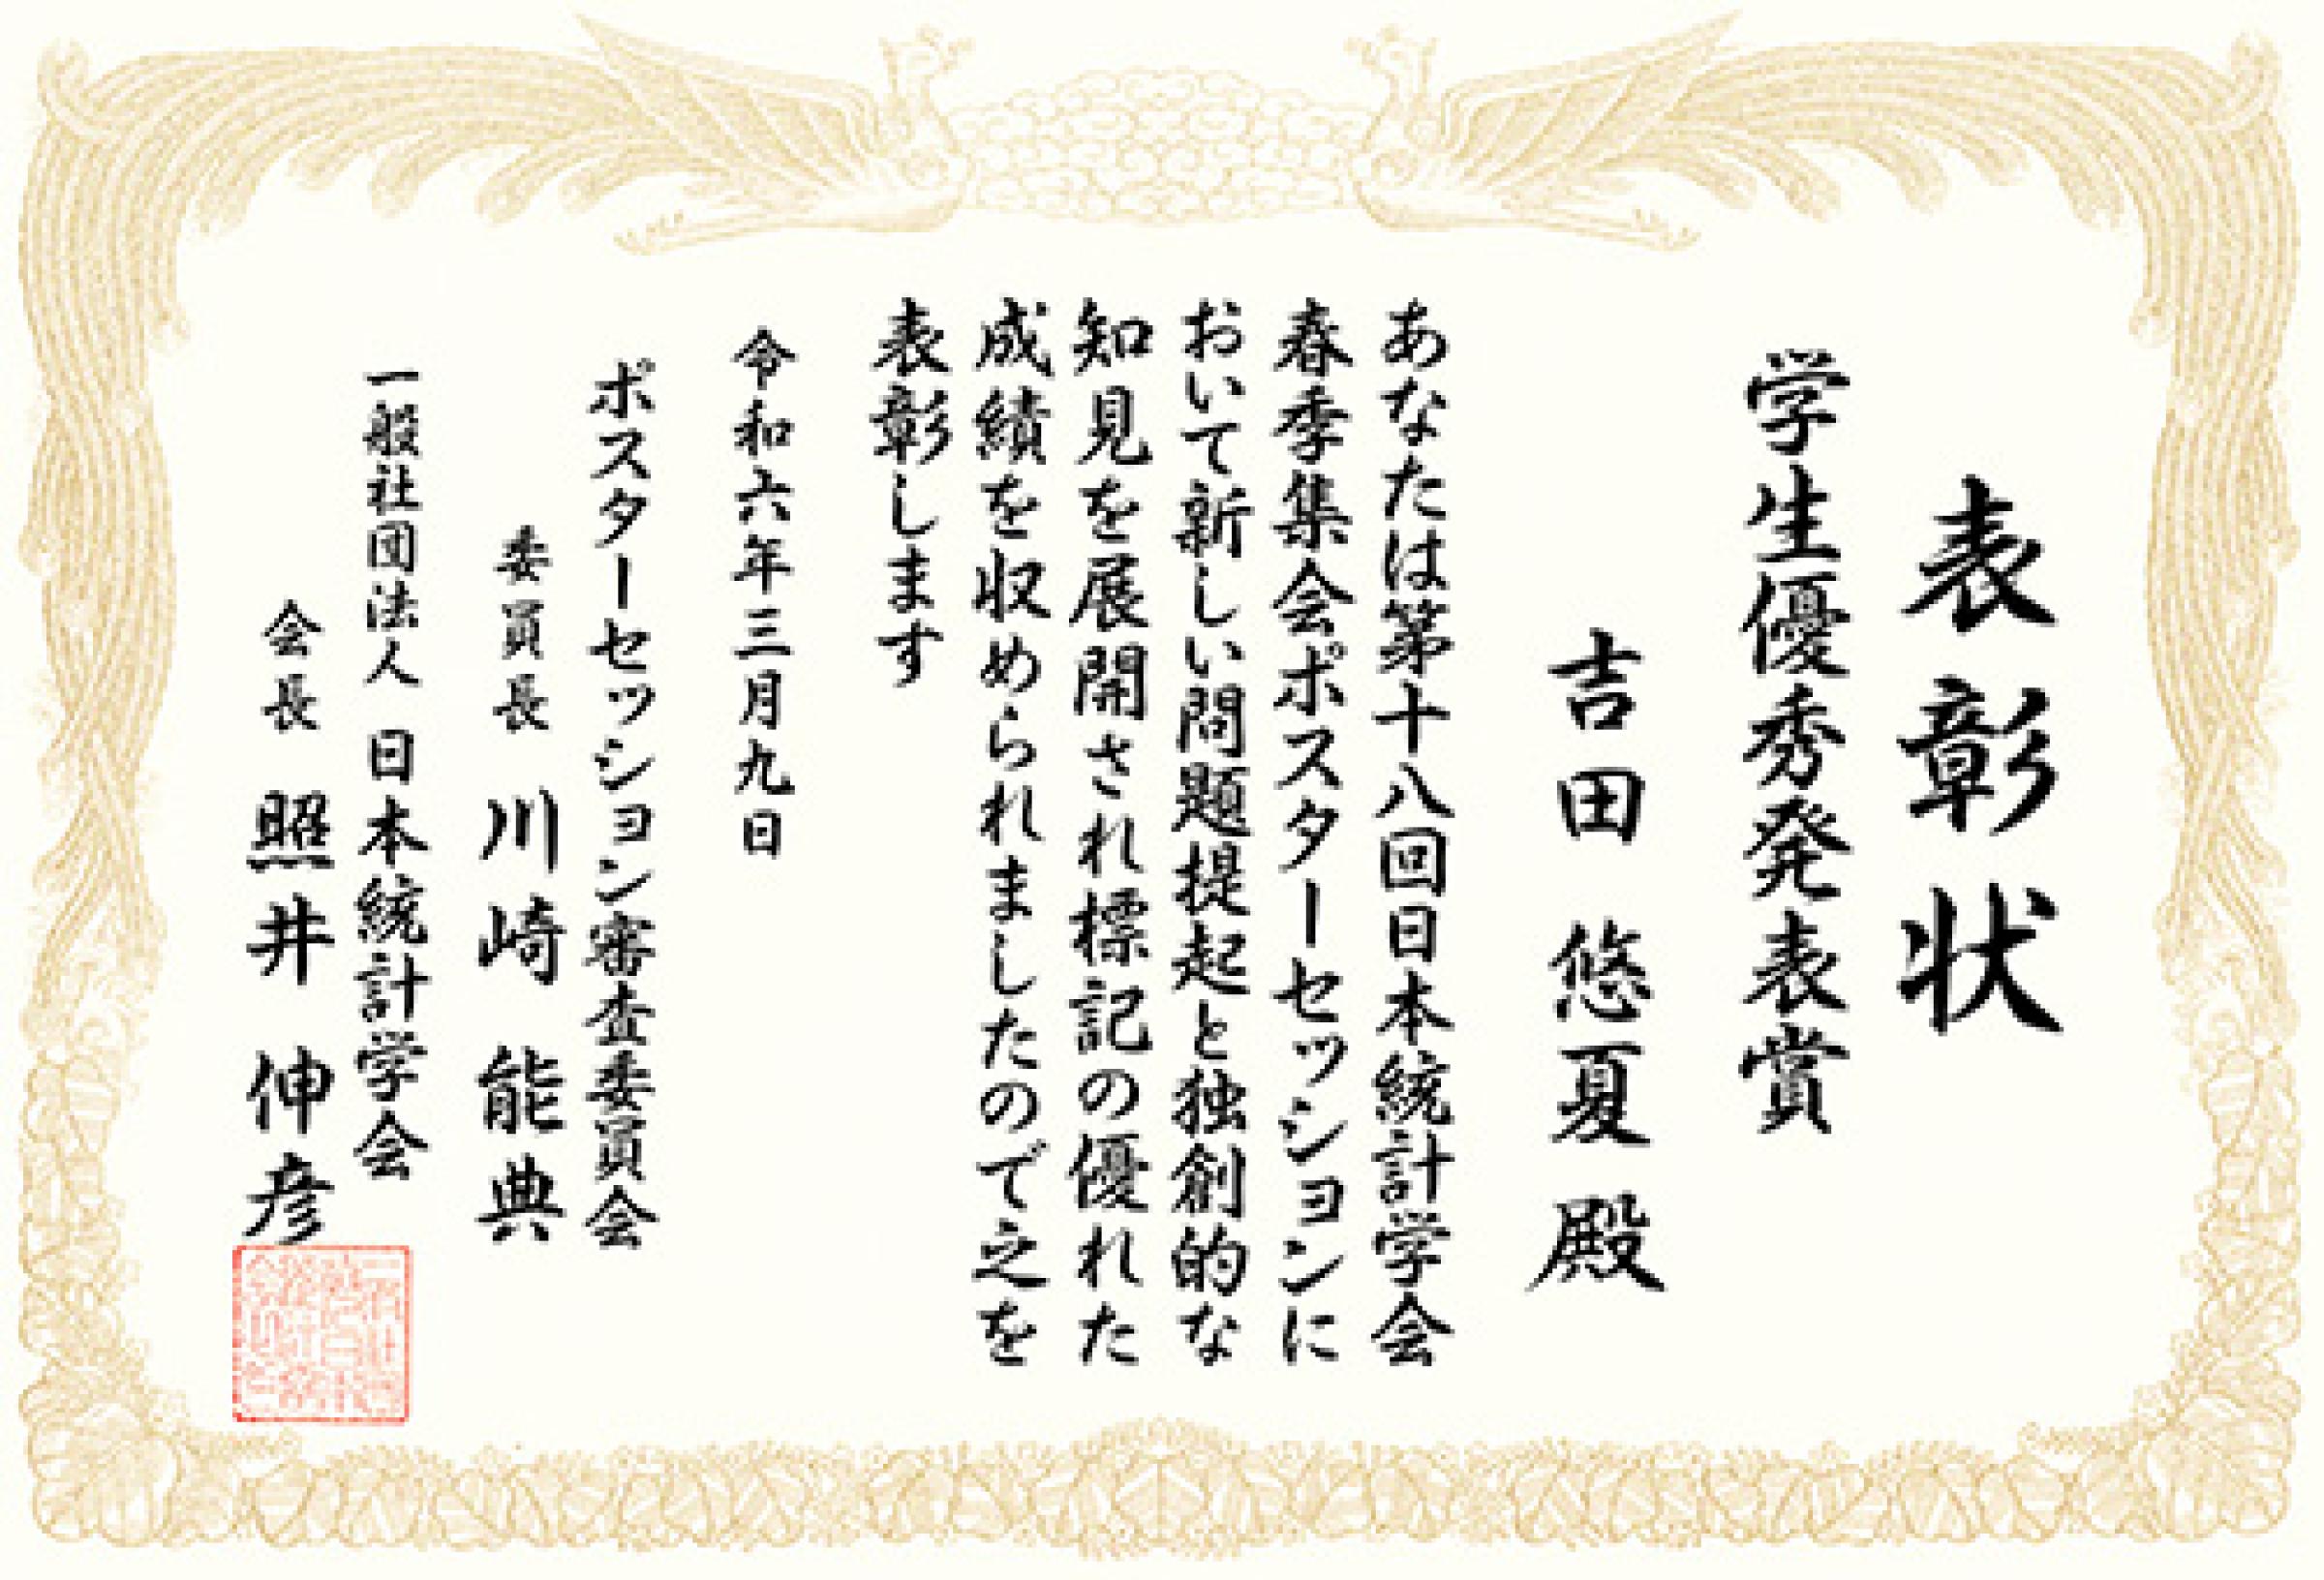 表彰状
学生優秀発表賞
吉田 悠夏 殿
あなたは第十八回日本統計学会
春季集会ポスターセッションに
おいて新しい問題提起と独創的な
知見を展開され標記の優れた
成績を収められましたので之を
表彰します
令和六年三月九日
ポスターセッション審査委員会
委員長 川崎 能典
一般社団法人 日本統計学会
会長 照井 伸彦